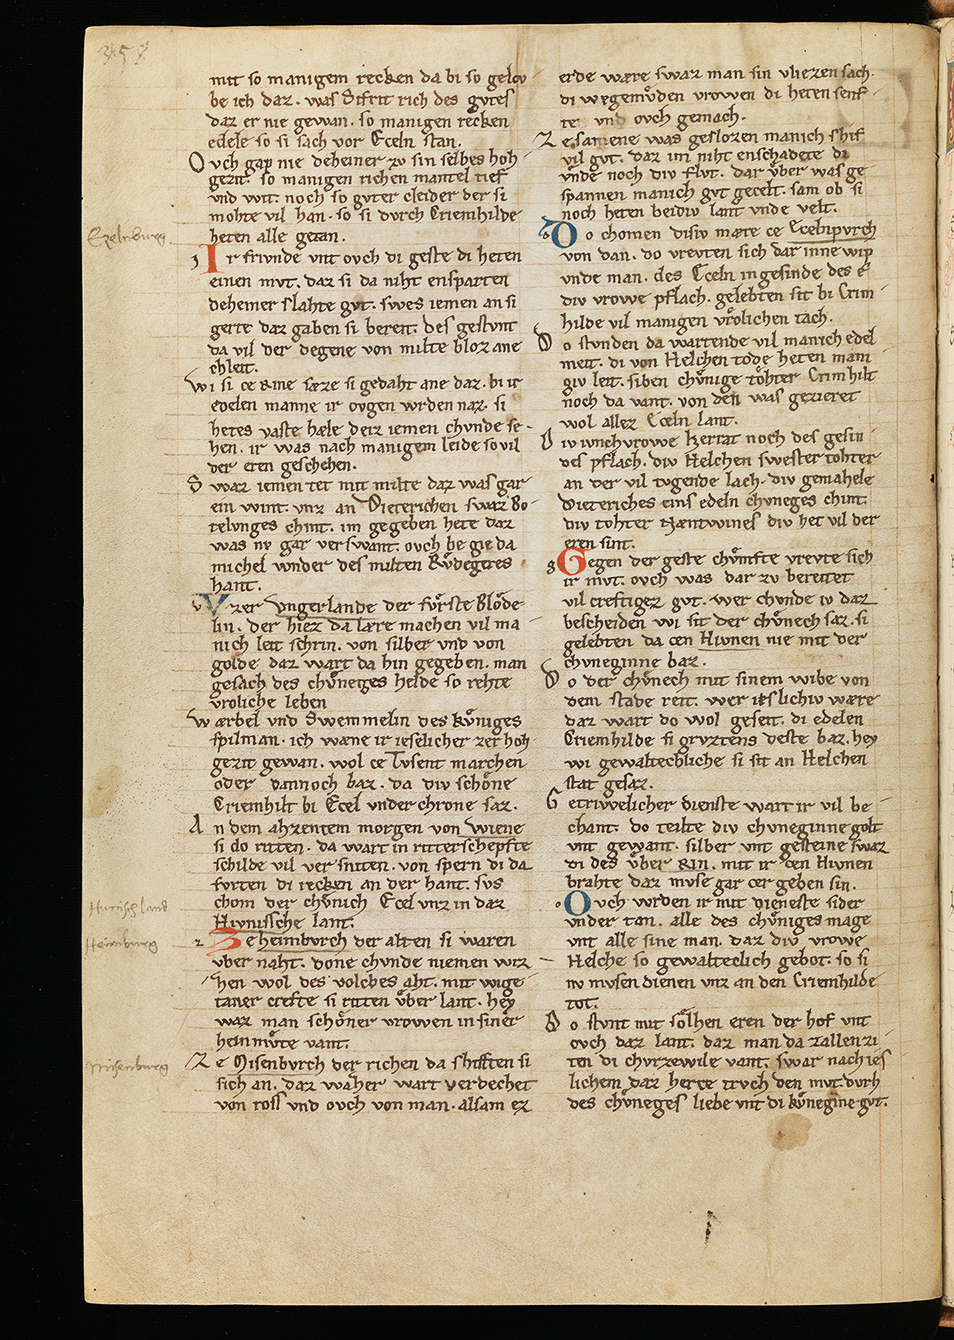 357
mit so manigem recken da bi so gelov
be ich daz. was Sifrit rich des gvtes
daz er nie gewan. so manigen recken
edele so si sach vor Eceln stan.
Ovch gap nie deheiner zv sin selbes hoh
gezit. so manigen richen mantel tief
vnd wit. noch so gvter cleider der si
mohte vil han. so si dvrch Criemhilde
Ezelnburg
heten alle getan.
Ir frivnde vnt ovch di geste di heten
einen mvt. daz si da niht ensparten
deheiner slahte gvt. swes iemen an si
gerte daz gaben si bereit. des gestvnt
da vil der degene von milte bloz ane
chleit.
Wi si ce Rine sæze si gedaht ane daz. bi ir
edelen manne ir ovgen wrden naz. si
hetes vaste hæle deiz iemen chvnde se-
hen. ir was nach manigem leide so vil
der eren geschehen.
Swaz iemen tet mit milte daz was gar
ein wint. vnz an Dieterichen swaz Bo
telvnges chint. im gegeben hete daz
was nv gar verswant. ovch begie da
michel wnder des milten Rvͦdegeres
hant.
Vzer Vngerlande der fvͤrste Bloͤde
lin. der hiez da lære machen vil ma
nich leit schrin. von silber vnd von
golde daz wart da hin gegeben. man
gesach des chvͤneges helde so rehte
vroliche leben
Wærbel vnd Swemmelin des kvͤniges
spilman. ich wæne ir ieselicher zer hoh
gezit gewan. wol ce Tvsent marchen
oder dannoch baz. da div schoͤne
Criemhilt bi Ecel vnder chrone saz.
An dem ahzentem morgen von Wiene
si do ritten. da wart in ritterschepfte
schilde vil versnitten. von spern di da
fvrten di recken an der hant. svs
Hunisch land
chom der chvͤnich Ecel vnz in daz
Hivnissche lant.
Heimburg
Ze heimbvrch der alten si waren
vber naht. done chvnde niemen wiz
hen wol des volches aht. mit wige
taner crefte si ritten vͤber lant. hey
waz man schoͤner vrowen in siner
heimvͦte vant.
Misenburg
Ze Misenbvrch der richen da shifften si
sich an. daz waher wart verdechet
von ross vnd ovch von man. alsam ez
erde wære swaz man sin vliezen sach.
di wegemvͤden vrowen di heten senf
te vnd ovch gemach.
Zesamene was geslozen manich shif
vil gvt. daz im niht enschadete di
vͤnde noch div flvt. dar vͤber was ge
spannen manich gvt gecelt. sam ob si
noch heten beidiv lant vnde velt.
Do chomen disiv mære ce Ecelnpvrch
von dan. do vrevten sich dar inne wip
vnde man. des Eceln ingesinde des e
div vrowe pflach. gelebten sit bi Crim
hilde vil manigen vrolichen tach.
Do stvnden da wartende vil manich edel
meit. di von Helchen tode heten mani
giv leit. siben chvͤnige toͤhter Crimhilt
noch da vant. von den was gezieret
wol allez Eceln lant.
Div ivnchvrowe Herrat noch des gesin
des pflach. div Helchen swester tohter
an der vil tvgende lach. div gemahele
Dieteriches eins edeln chvneges chint.
div tohter Næntwines div het vil der
eren sint.
Gegen der geste chvͤmfte vrevte sich
ir mvt. ovch was dar zv bereitet
vil creftigez gvt. wer chvnde iv daz
bescheiden wi sit der chvͤnech saz. si
gelebten da cen Hivnen nie mit der
chvneginne baz.
Do der chvͤnech mit sinem wibe von
dem stade reit. wer ieslichiv wære
daz wart do wol geseit. di edelen
Criemhilde si grvztens deste baz. hey
wi gewaltechliche si sit an Helchen
stat gesaz.
Getriwelicher dienste wart ir vil be
chant. do teilte div chvneginne golt
vnt gewant. silber vnt gesteine swaz
di des vͤber Rin. mit ir cen Hivnen
brahte daz mvse gar cergeben sin.
Ovch wrden ir mit dieneste sider
vnder tan. alle des chvͤniges mage
vnt alle sine man. daz div vrowe
Helche so gewaltechlich gebot. so si
nv mvsen dienen vnz an den Criemhilde
tot.
Do stvnt mit soͤlhen eren der hof vnt
ovch daz lant. daz man da zallen zi
ten di chvrzewile vant. swar nach ies
lichem daz herce trvch den mvt. dvrh
des chvͤneges liebe vnt di kvͤnegine gvt.